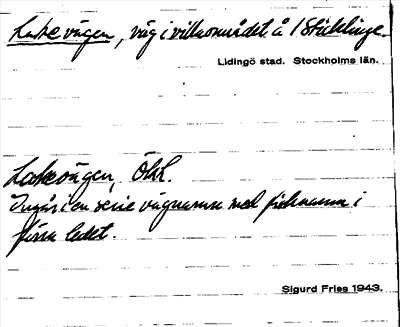 Lakevägen, väg i villaområdet å 1 Sticklinge.
Lidingö stad. Stockholms län.
Lakevägen, ÖhL.
Ingår i en serie vägnamn med fisknamn i
förra ledet.
Sigurd Fries 1943.